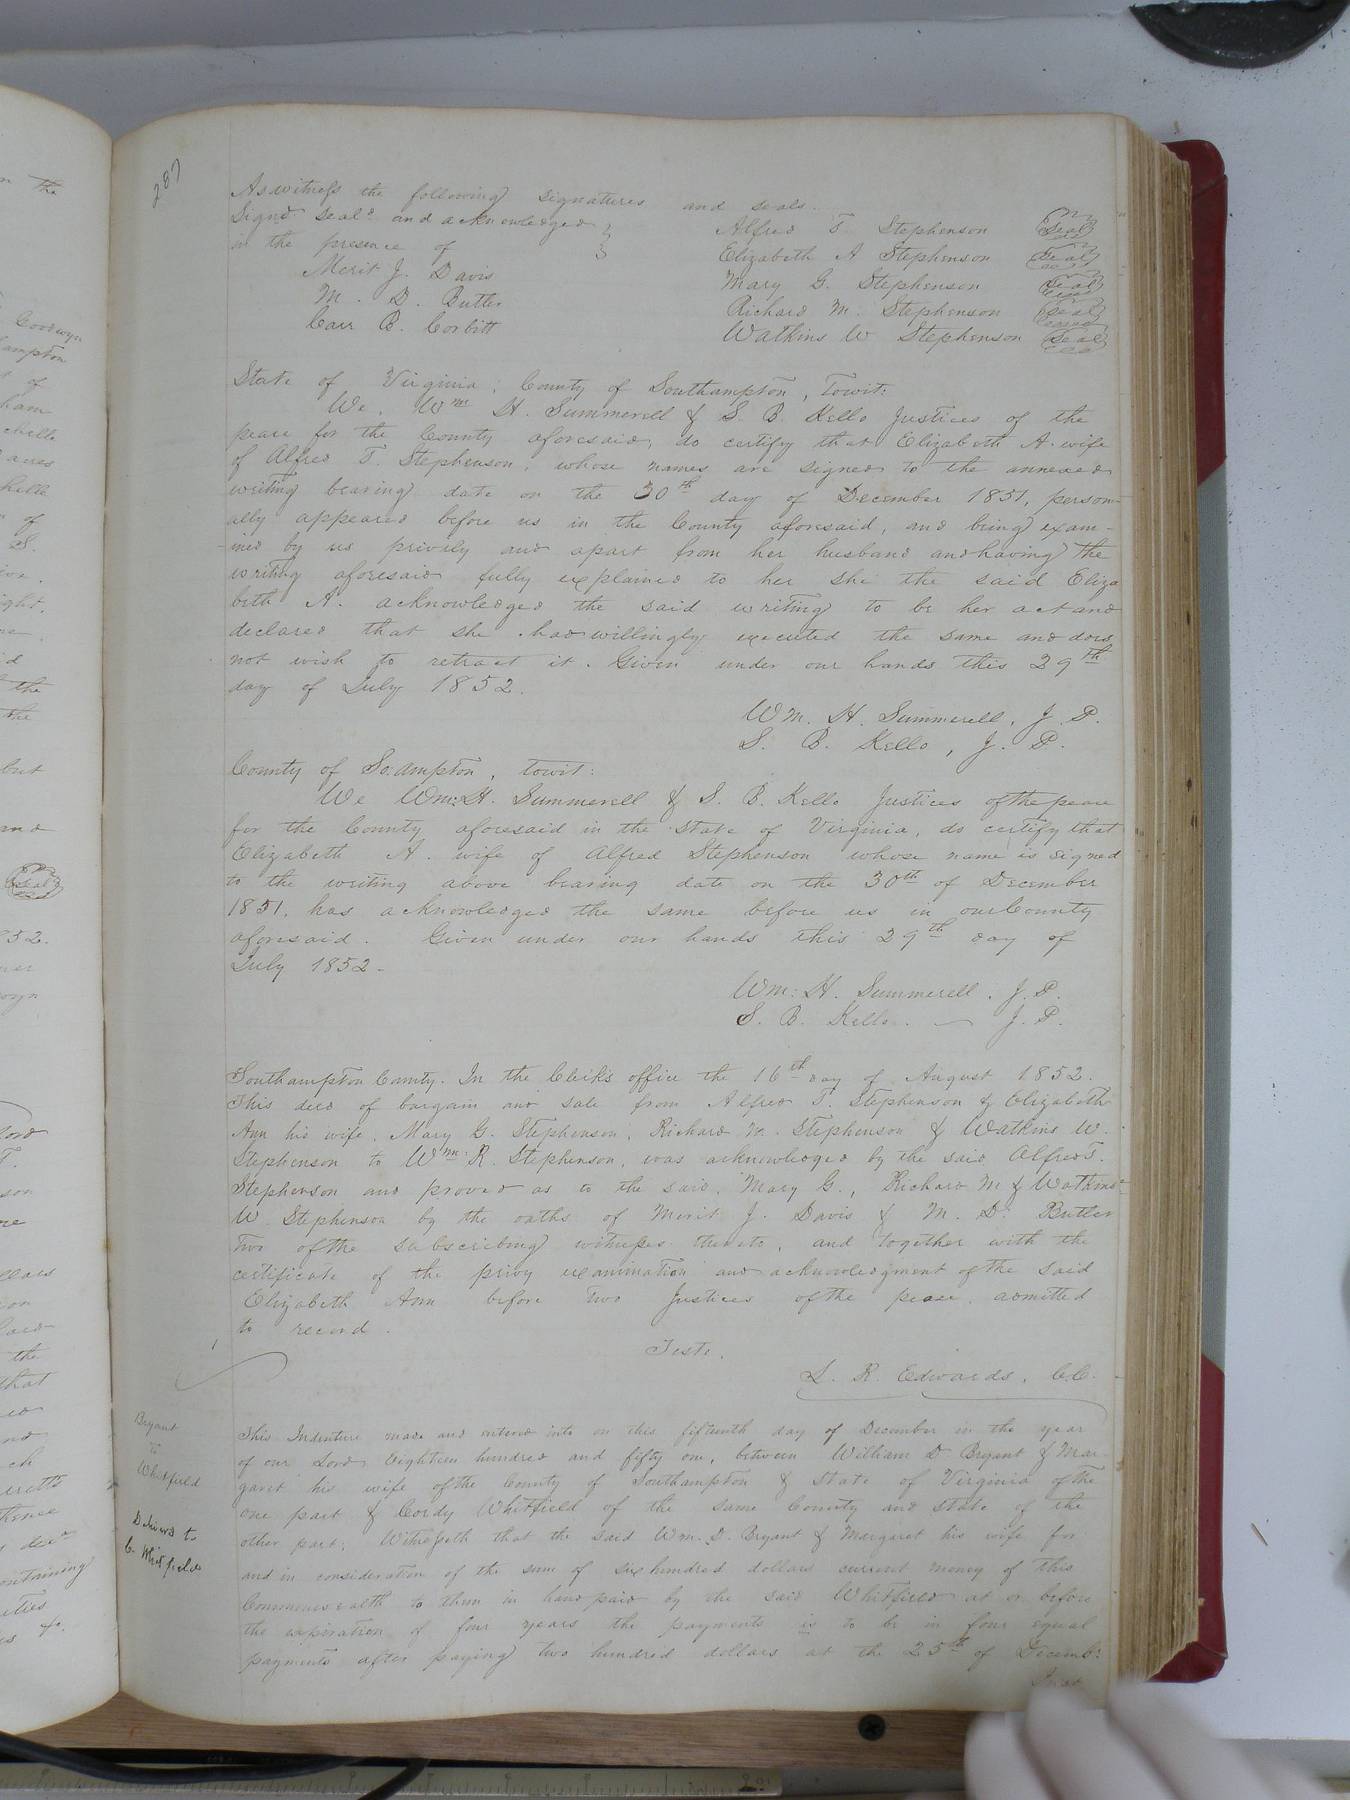 287
As witness the following signatures and seals.
Signd Seald and acknowledged
in the presence of
Merit J. Davis
M. D. Butler
Carr B. Corbitt
Alfred T Stephenson Seal
Elizabeth A Stephenson Seal
Mary G. Stephenson Seal
Richard M. Stephenson Seal
Watkins W Stephenson Seal
State of Virginia; County of Southampton, Towit:
We, Wm H. Summerell & S. B. Kello Justices of the
peace for the County aforesaid, do certify that Elizabeth A. wife
of Alfred T. Stephenson, whose names are signed to the annexed
writing bearing date on the 30th day of December 1851, person-
ally appeared before us in the County aforesaid, and being exam-
-ined by us privily and apart from her husband and having the
writing aforesaid fully explained to her she the said Eliza
beth A. acknowledged the said writing to be her act and
declared that she had willingly executed the same and does
not wish to retract it. Given under our hands this 29th
day of July 1852.
Wm. H. Summerell, J. P.
S. B. Kello, J. P.
County of So:ampton, towit:
We Wm: H. Summerell & S. B. Kello Justices of the peace
for the County aforesaid in the State of Virginia, do certify that
Elizabeth A. wife of Alfred Stephenson whose name is signed
to the writing above bearing date on the 30th of December
1851, has acknowledged the same before us in our County
aforesaid. Given under our hands this 29th day of
July 1852-
Wm: H. Summerell. J. P.
S. B. Kello. — J. P.
Southampton County. In the Clerk's office the 16th day of August 1852.
This deed of bargain and sale from Alfred T. Stephenson & Elizabeth
Ann his wife, Mary G. Stephenson, Richard M. Stephenson & Watkins W.
Stephenson to Wm: R. Stephenson, was acknowledged by the said Alfred T.
Stephenson and proved as to the said, Mary G., Richard M & Watkins
W. Stephenson by the oaths of Merit J. Davis & M. D. Butler
two of the subscribing witnesses thereto, and together with the
certificate of the privy examination and acknowledgment of the said
Elizabeth Ann before two Justices of the peace, admitted
to record.
Teste,
L. R. Edwards, C.C.
Bryant
to
Whitfield
Deliverd to
C. Whitfield
This Indenture made and entered into on this fifteenth day of December in the year
of our Lord Eighteen hundred and fifty one, between William D Bryant & Mar-
garet his wife of the County of Southampton & State of Virginia of the
one part & Cordy Whitfield of the same County and state of the
other part; Witnesseth that the said Wm. D. Bryant & Margaret his wife for
and in consideration of the sum of six hundred dollars current money of this
Commonwealth to them in hand paid by the said Whitfield at or before
the expiration of four years the payments is to be in four equal
payments after paying two hundred dollars at the 25th of Decemb: